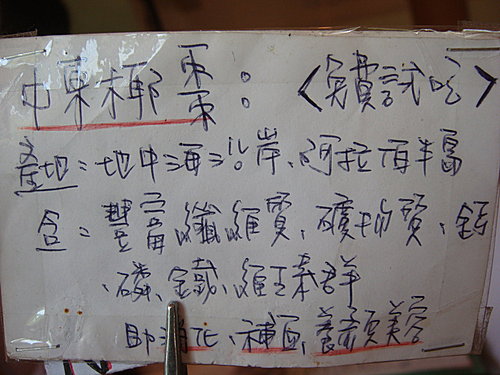 中東椰棗：〈免費試吃〉
產地：地中海沿岸、阿拉頂半島
含：豐富纖維質、礦物質、鈣
、磷、鐵、維生素群
助消化、補血、養顏美容